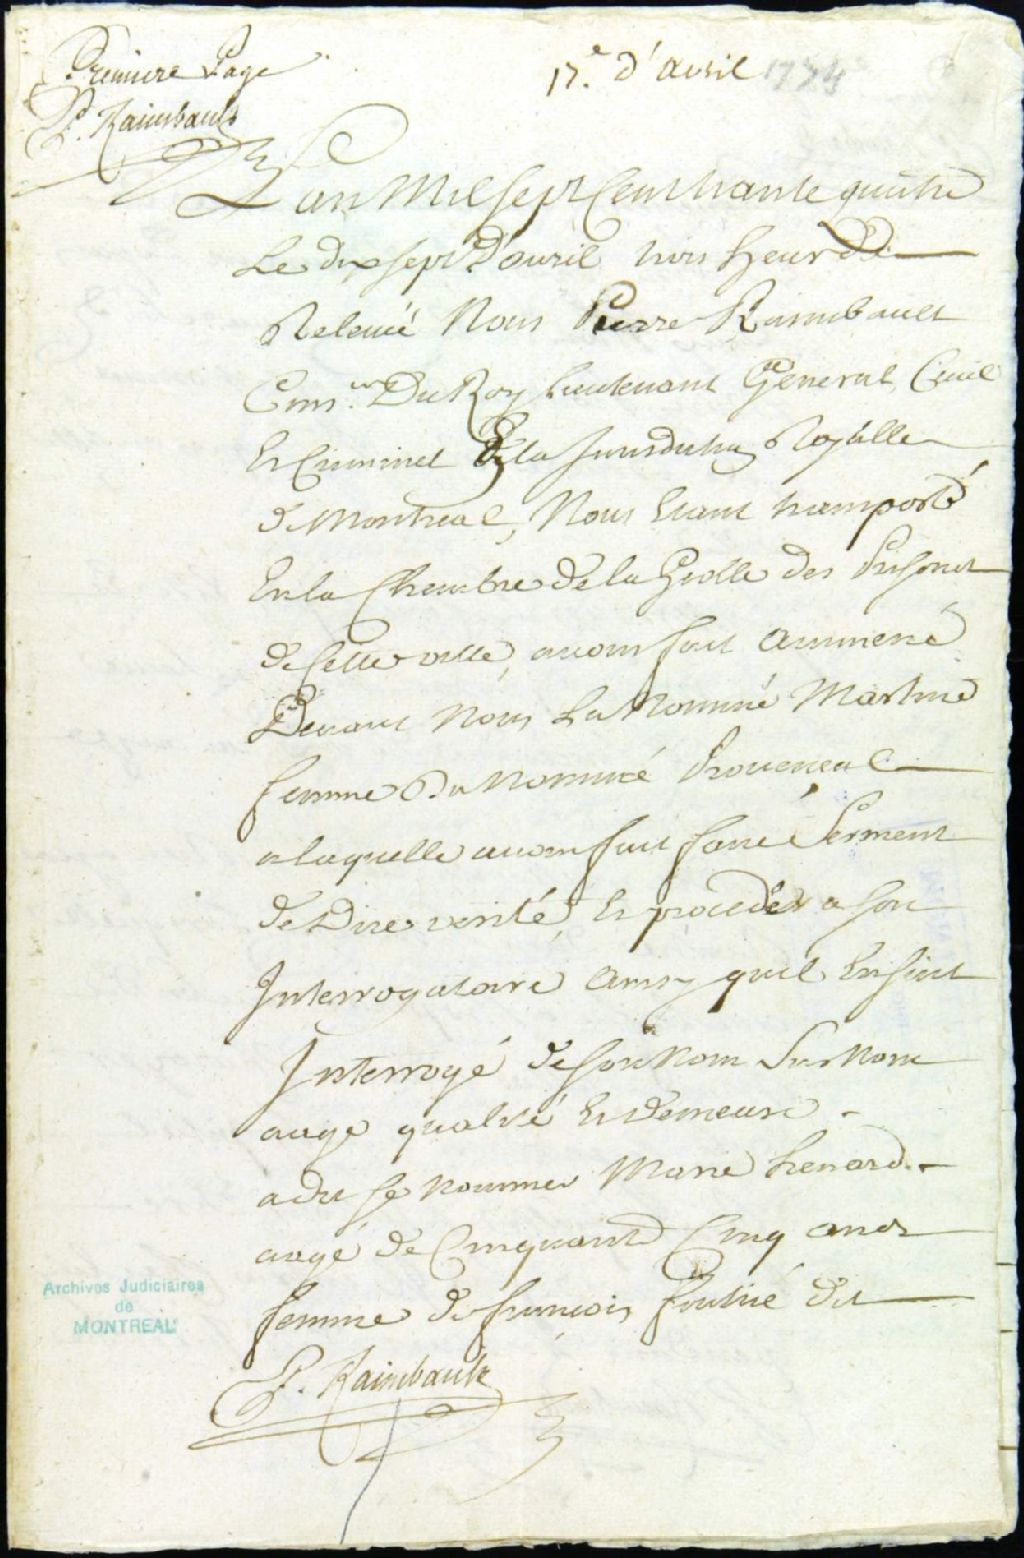 Premiere Page
P. Raimbault
17.e d'avril 1734
L'an Mil Sept Cent trante quatre
Le dix sept d'avril trois heur de
Relevé Nous Pierre Raimbault
Cons.er Du Roy Lieutenant General Civil
Et Criminel de la Jurisdiction Royalle
de Montreal, Nous Etant transporté
En la Chambre de la Geolle des Prisons
de Cette ville, avons fait ammené
Devant Nous La Nommé Martine
femme Du Nommé Provençal
a laquelle avons fait faire Serment
de Dire verité, Et proceder a son
Interrogatoire Ainsy quil Ensuit
Interrogé de son Nom Surnom
aage qualité Et Demeure.
a dit se Nommer Marie
aagé de Cinquante Cinq ans
femme de françois dit
P. Raimbault
Archives Judiciaires
de
MONTREAL